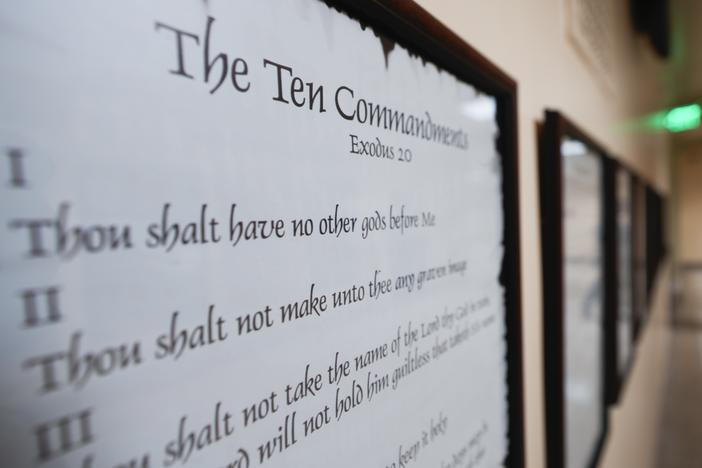 The Ten Commandments
Exodus 20
I
Thou shalt have no other gods before Me
II
Thou shalt not make unto thee any graven image
III
Thou shalt not take the name of the Lord thy God in vain
will not hold him guiltless that taketh
keep it holy